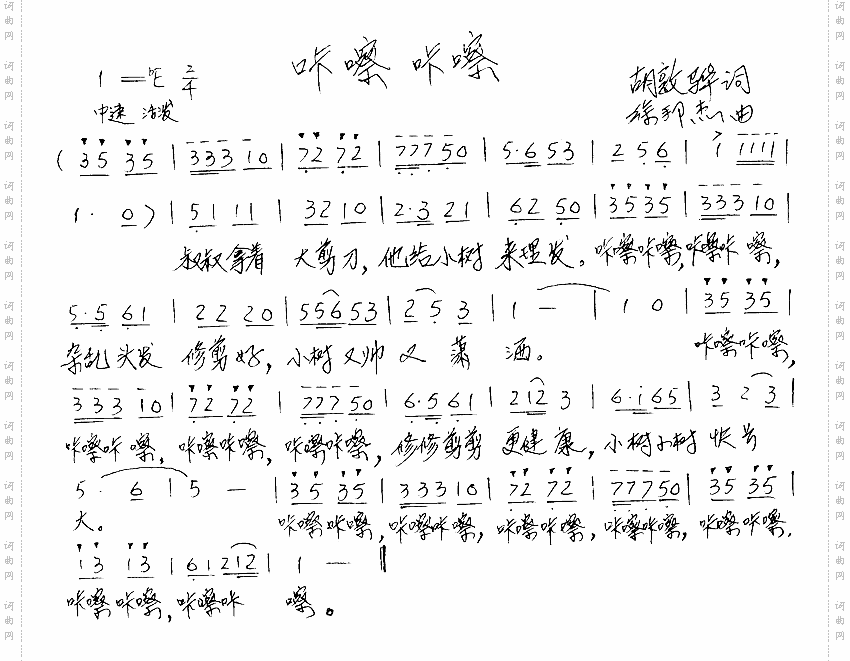 咔嚓 咔嚓
1=♭E 2/4
中速 活泼
胡敦骅 词
曲
( 35 35 | 333 10 | 72 72 | 777 50 | 5·6 53 | 2 56 | 1 1111 |
1· 0 ) | 51 11 | 32 10 | 2·3 21 | 62 50 | 35 35 | 333 10 |
叔叔拿着 大剪刀, 他给小树 来理发。咔嚓咔嚓, 咔嚓咔 嚓,
5·5 61 | 22 20 | 556 53 | 25 3 | 1 — | 1 0 | 35 35 |
杂乱头发 修剪好, 小树又帅 又 潇 洒。 咔嚓咔嚓,
333 10 | 72 72 | 777 50 | 6·5 61 | 212 3 | 6·i 65 | 3 2 3 |
咔嚓咔 嚓, 咔嚓咔嚓, 咔嚓咔嚓, 修修剪剪 更健 康, 小树小树 快长
5· 6 | 5 — | 35 35 | 333 10 | 72 72 | 777 50 | 35 35 |
大。 咔嚓咔嚓, 咔嚓咔嚓, 咔嚓咔嚓, 咔嚓咔嚓, 咔嚓咔嚓,
13 13 | 61 212 | 1 — ‖
咔嚓咔嚓, 咔嚓咔 嚓。
词曲网